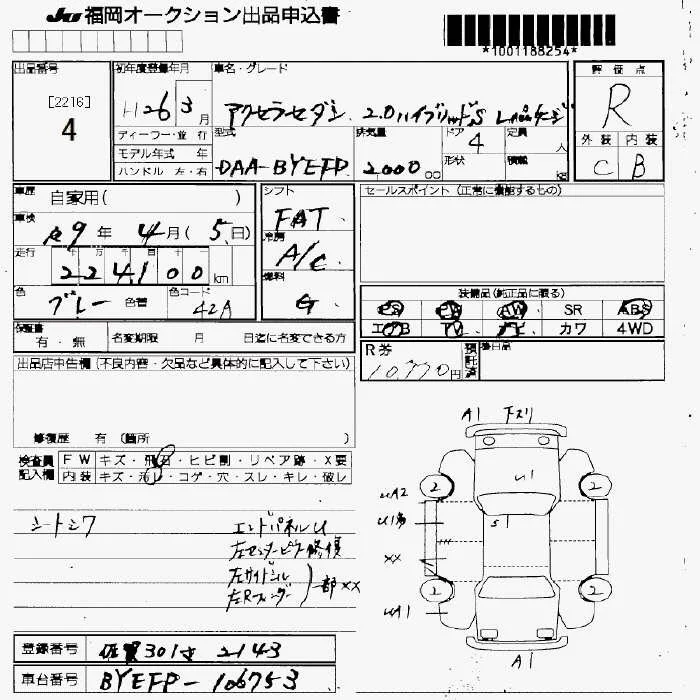 JU 福岡オークション出品申込書
*1001188254*
出品番号
[2216]
4
初年度登録年月
H26 3月
車名・グレード
アクセラセダン 2.0ハイブリッドS Lパッケージ
評価点
R
外装 内装
C B
ディーラー・並行
モデル年式 年
ハンドル 左・右
型式
DAA-BYEFP
排気量
2000 cc
ドア
4
形状
定員
人
積載
kg
車歴 自家用( )
車検
R9年 4月( 5日)
走行
224,100 km
色
ブルー
色替
色コード
42A
シフト
FAT
冷房
A/C
燃料
G
セールスポイント (正常に機能するもの)
装備品(純正品に限る)
PS PW AW SR ABS
エアB TV ナビ カワ 4WD
保証書
有・無
名変期限 月 日迄に名変できる方
R券
10,770円
預託済
後日品
出品店申告欄(不良内容・欠品など具体的に記入して下さい)
修復歴 有 (箇所 )
検査員記入欄
FW キズ・飛石・ヒビ割・リペア跡・X要
内装 キズ・汚レ・コゲ・穴・スレ・キレ・破レ
シートシワ
エンドパネルU
左センターピラー修復
左サイドシル
左Rフェンダー
一部XX
A1 下スリ
2 2
U1
UA2
S1
XX
2 2
UA1
A1
登録番号 佐賀301さ 2143
車台番号 BYEFP-106753